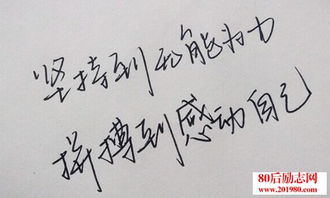 坚持到无能为力
拼搏到感动自己
80后励志网
www.201980.com